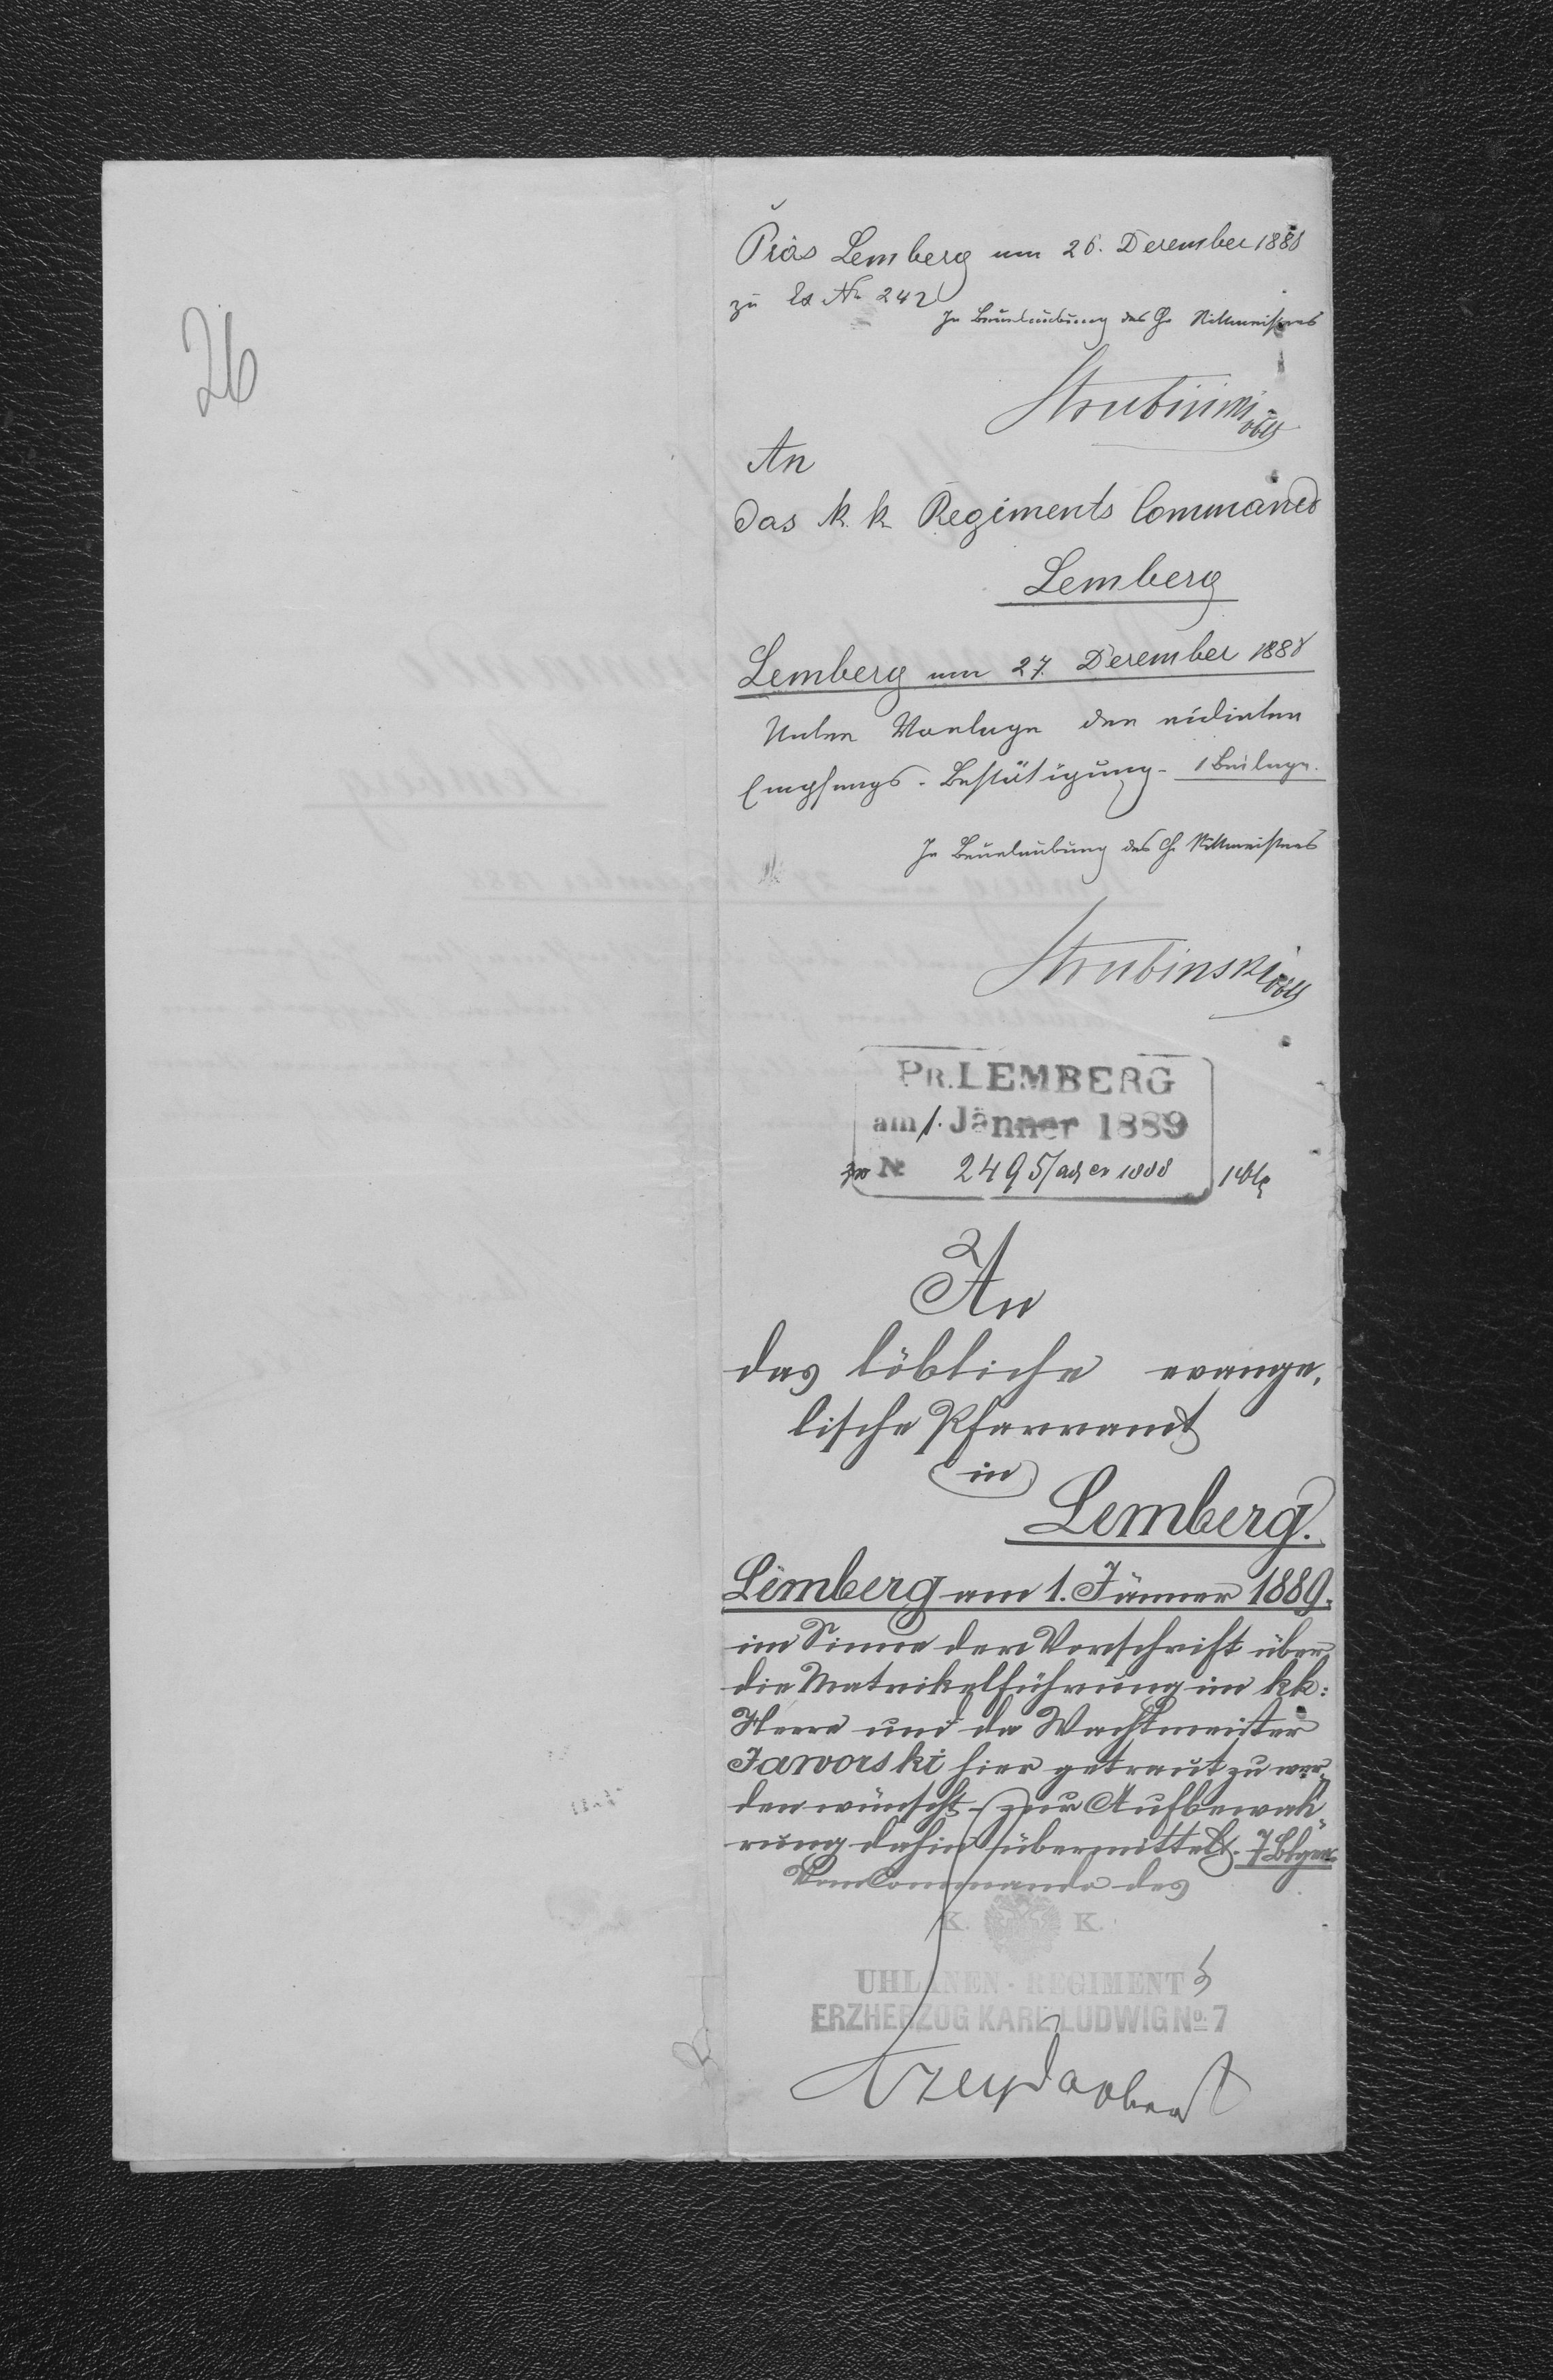 26
Präs Lemberg am 26. Dezember 1888
zu Es Nr 242
In Beurlaubung des H. Rittmeisters
Strubinski Oblt
An
das k. k. Regiments Commando
Lemberg
Lemberg am 27. Dezember 1888
Unter Vorlage der vidirten
Empfangs-Bestätigung - 1 Beilage.
In Beurlaubung des H. Rittmeisters
Strubinski Oblt
PR. LEMBERG
am 1. Jänner 1889
zu No 2495/adj ex 1888
An
das löbliche evange-
lische Pfarramt
in
Lemberg.
Lemberg am 1. Jänner 1889.
im Sinne der Vorschrift über
die Matrikelführung im kk:
Heere und da Wachtmeister
Jaworski hier getraut zu wer-
den wünscht - zur Aufbewah-
rung dahin übermittelt. 7 Blgen
Vom Commando des
K. K.
UHLANEN-REGIMENTS
ERZHERZOG KARL LUDWIG No. 7
Oberst